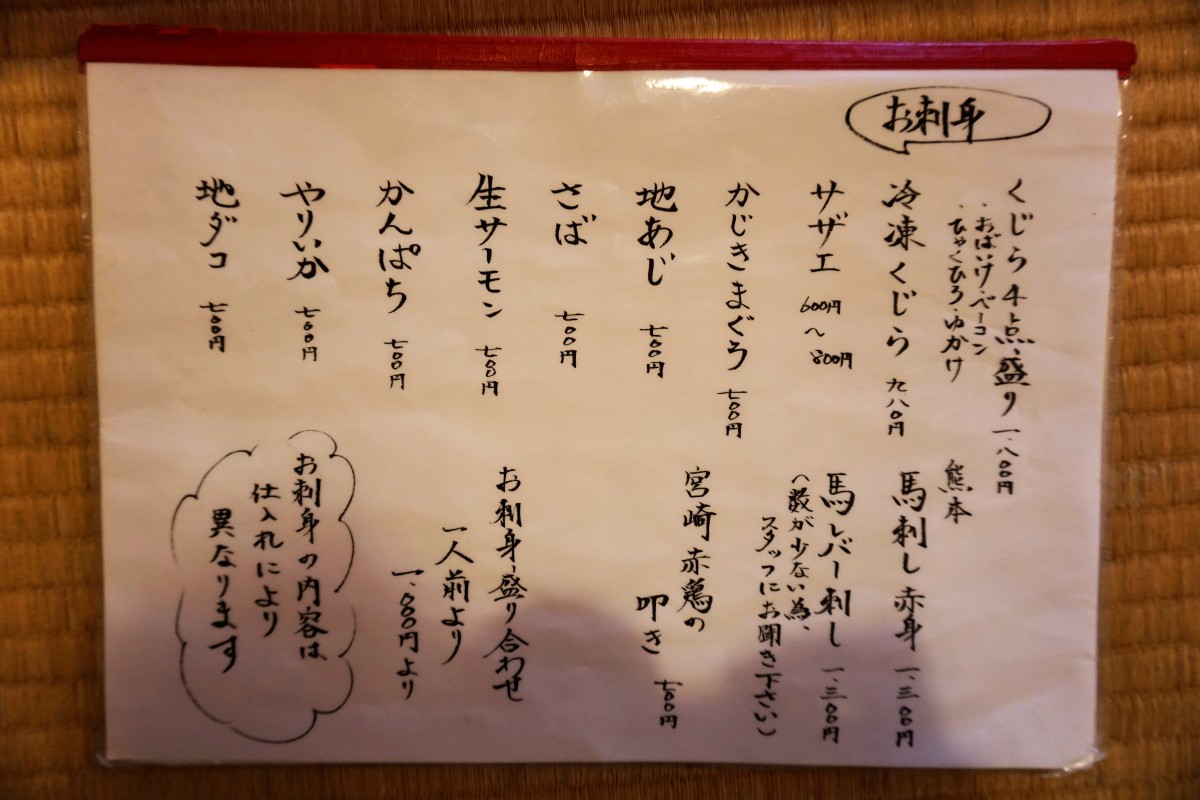 お刺身
くじら4点盛り 一、八〇〇円
・おばいけ・ベーコン
・ひゃくひろ・ゆかけ
冷凍くじら 九八〇円
サザエ 600円～800円
かじきまぐろ 七〇〇円
地あじ 七〇〇円
さば 七〇〇円
生サーモン 七〇〇円
かんぱち 七〇〇円
やりいか 七〇〇円
地ダコ 七〇〇円
熊本
馬刺し赤身 一、三〇〇円
馬レバー刺し 一、三〇〇円
(数が少ない為、
スタッフにお聞き下さい)
宮崎赤鶏の
叩き 七〇〇円
お刺身盛り合わせ
一人前より
一、〇〇〇円より
お刺身の内容は
仕入れにより
異なります